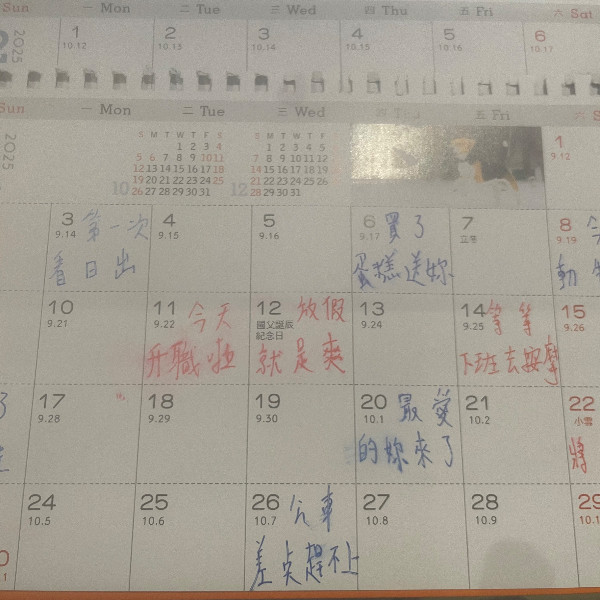 Sun 一 Mon 二 Tue 三 Wed 四 Thu 五 Fri 六 Sat
2025 1 2 3 4 5 6
10.12 10.13 10.14 10.15 10.16 10.17
Sun 一 Mon 二 Tue 三 Wed 四 Thu 五 Fri 六
2025
10
S M T W T F S
1 2 3 4
5 6 7 8 9 10 11
12 13 14 15 16 17 18
19 20 21 22 23 24 25
26 27 28 29 30 31
12
S M T W T F
1 2 3 4 5
7 8 9 10 11 12
14 15 16 17 18 19
21 22 23 24 25 26
28 29 30 31
1
9.12
3 第一次
9.14
看日出
4
9.15
5
9.16
6 買了
9.17
蛋糕送妳
7
立冬
8
9.19
動
10
9.21
11 今天
9.22
升職啦
12 放假
國父誕辰
紀念日
就是爽
13
9.24
14 等等
9.25
下班去按摩
15
9.26
17
9.28
18
9.29
19
9.30
20 最愛
10.1
的妳來了
21
10.2
22
小雪
將
24
10.5
25
10.6
26 公車
10.7
差点趕不上
27
10.8
28
10.9
29